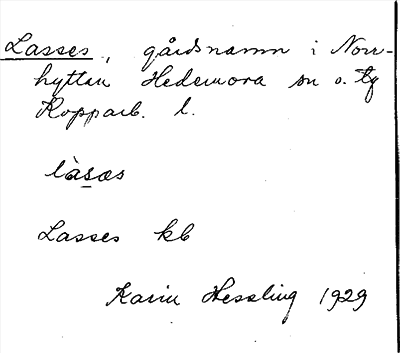 Lasses, gårdsnamn i Norr-
hyttan Hedemora sn o. tg
Kopparb. l.
làsæs
Lasses kb
Karin Hessling 1929